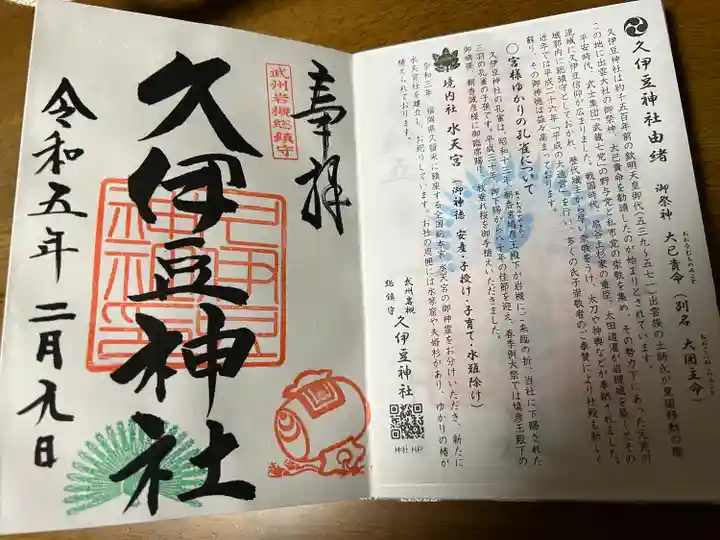 奉拝
武州岩槻総鎮守
久伊豆神社
令和五年二月九日
久伊豆神社由緒
御祭神 大己貴命(別名 大国主命)
おおなむちのみこと
おおくにぬしのみこと
久伊豆神社は約千五百年前の欽明天皇御代(五三九〜五七一)出雲族の土師氏が東国移動の際
この地に出雲大社の御祭神、大己貴命を勧請したのが始まりとされています。
平安時代、武士集団「武蔵七党」の野与党と私市党の崇敬を集め、その勢力下にあった元荒川
流域に久伊豆信仰が広まりました。戦国時代、扇谷上杉家の重臣、太田道灌が岩槻城を築くとその
城郭内に総鎮守としておかれ、歴代城主から厚い崇敬をうけ、太刀や神輿などが奉納されました。
近年では平成二十六年「平成の大造営」を行い、多くの氏子崇敬者のご奉賛により社殿も新しく
蘇り、その御神徳は益々高まっております。
〇宮様ゆかりの孔雀について
久伊豆神社の孔雀は、昭和十三年、朝香宮鳩彦王殿下が岩槻にご来臨の折、当社に下賜された
三羽の孔雀の子孫です。平成三十年、御下賜から八十年の佳節を迎え、春季例大祭では鳩彦王殿下の
御嫡孫、朝香誠彦様に御臨席賜り、枝垂れ桜を御手植えいただきました。
境内社 水天宮 (御神徳 安産・子授け・子育て・水難除け)
令和三年、福岡県久留米に鎮座する全国総本宮 水天宮の御神霊をお分けいただき、新たに
水天宮社を建立し、お祀りしています。お社の周囲には水琴窟や夫婦杉があり、ゆかりの椿が
植えられております。
武州岩槻
総鎮守 久伊豆神社
神社HP